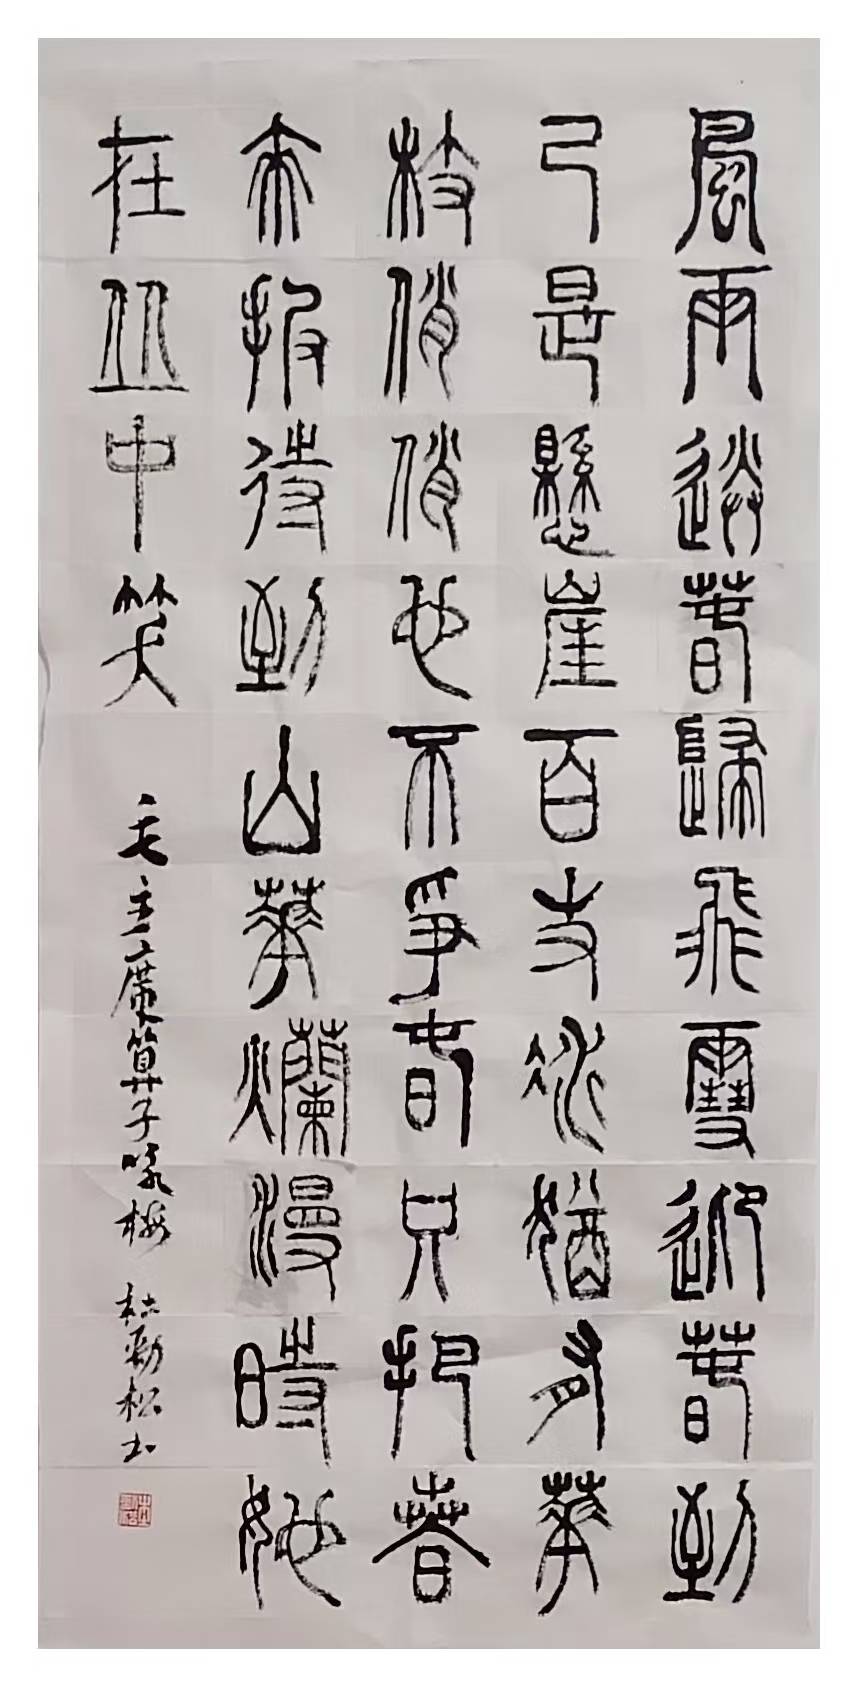 風雨送春歸飛雪迎春到
已是懸崖百丈冰猶有華
枝俏俏也不爭春只把春
來報待到山華爛漫時她
在丛中笑
毛主席算子咏梅 勁松书